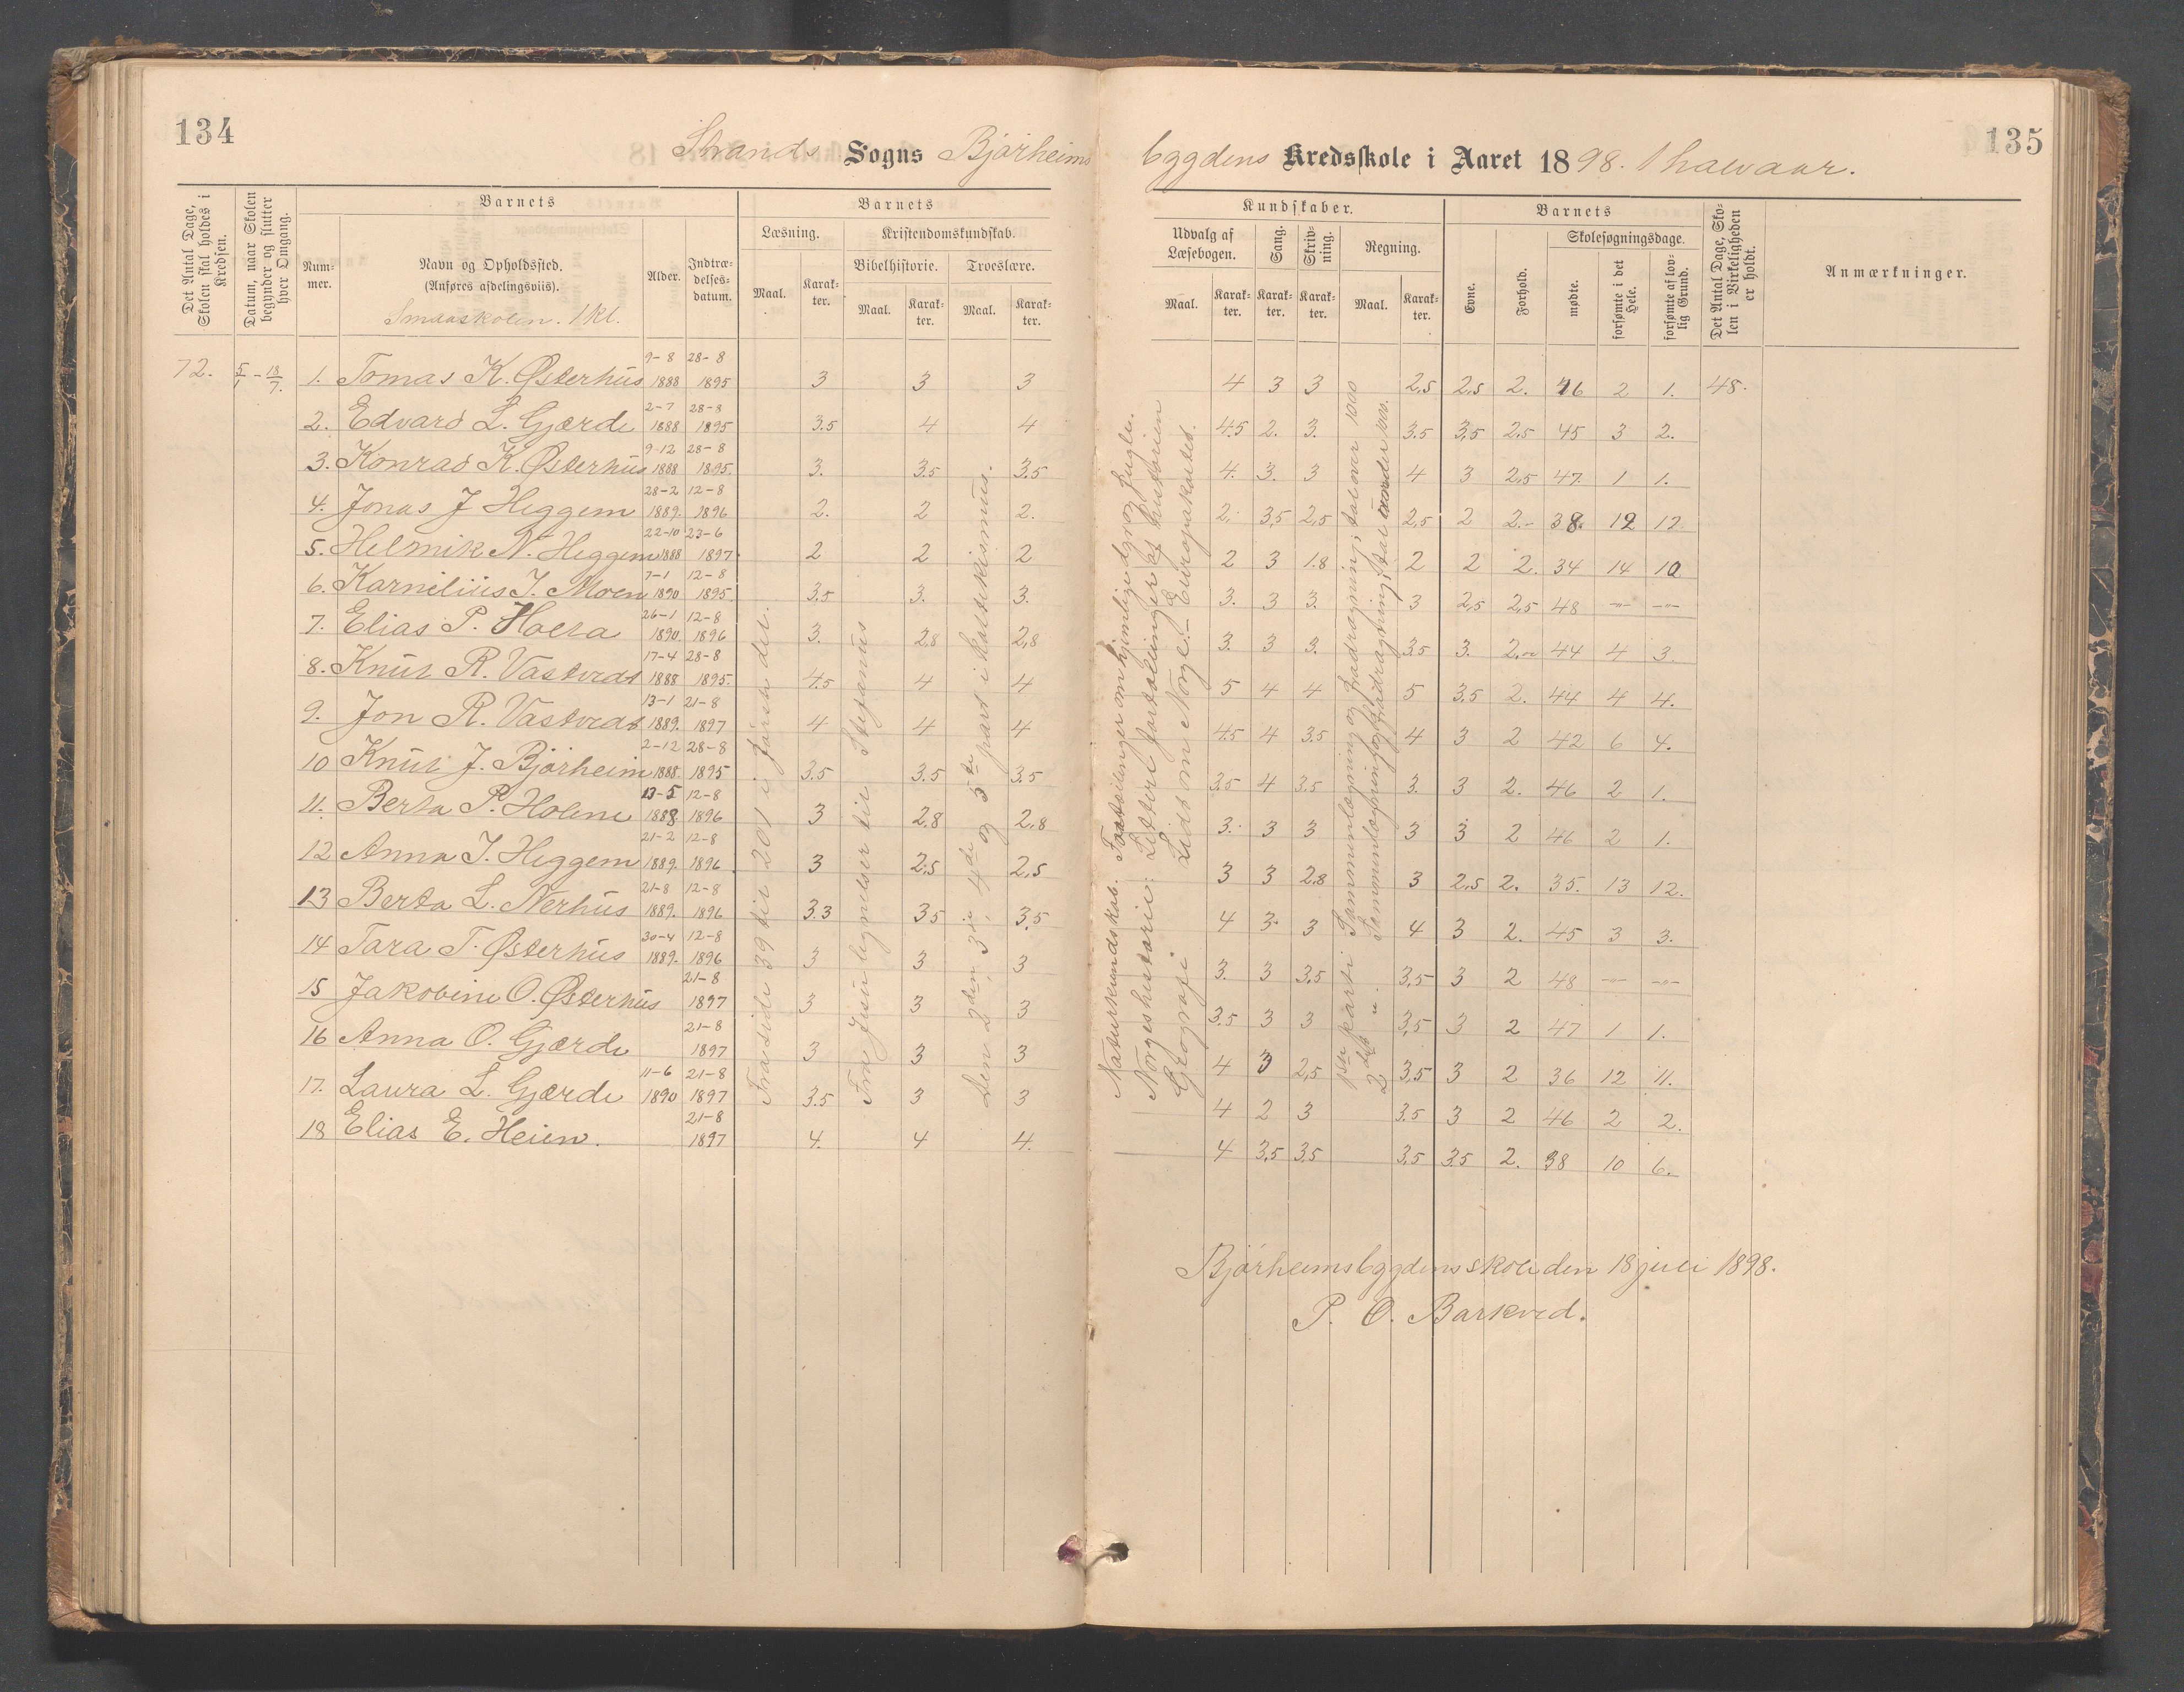 134
135
Strands Sogns Bjørheims
bygdens Kredsskole i Aaret 1898. 1 halvaar.
Det Antal Dage, Skolen skal holdes i Kredsen.
Datum, naar Skolen begynder og slutter hver Omgang.
Barnets
Nummer.
Navn og Opholdssted.
(Anføres afdelingsviis).
Smaaskolen. 1 Kl.
Alder.
Indtrædelsesdatum.
Barnets
Læsning.
Maal.
Karakter.
Kristendomskundskab.
Bibelhistorie.
Maal.
Karakter.
Troeslære.
Maal.
Karakter.
Kundskaber.
Udvalg af Læsebogen.
Maal.
Karakter.
Sang.
Karakter.
Skrivning.
Karakter.
Regning.
Maal.
Karakter.
Barnets
Evne.
Forhold.
Skolesøgningsdage.
mødte.
forsømte i det Hele.
forsømte af lovlig Grund.
Det Antal Dage, Skolen i Virkeligheden er holdt.
Anmærkninger.
72. 5/1 – 18/7. 1. Tomas K. Østerhus 9-8 1888 28-8 1895 3 3 3 4 3 3 2,5 2,5 2. 46 2 1. 48.
2. Edvard L. Gjærde 2-7 1888 28-8 1895 3.5 4 4 4.5 2. 3. 3.5 3,5 2,5 45 3 2.
3. Konrad K. Østerhus 9-12 1888 28-8 1895. 3. 3.5 3.5 4. 3. 3 4 3 2,5 47. 1 1.
4. Jonas J Heggem 28-2 1889. 12-8 1896 2. 2 2. 2. 3,5 2,5 2,5 2 2.- 38. 12 12.
5. Helmik N. Heggem 22-10 1888 23-6 1897 2 2 2 2 3 1.8 2 2 2. 34 14 10
6. Karnelius J. Moen 7-1 1890 12-8 1895. 3.5 3. 3. 3. 3 3. 3 2,5 2,5 48 -"- -"-
7. Elias P. Holta 26-1 1890. 12-8 1896 3. 2,8 2,8 3. 3 3. 3.5 3. 2. 44 4 3.
8. Knut R. Vastveds 17-4 1888 28-8 1895. 4.5 4 4 5 4 4 5 3.5 2. 44 4 4.
9. Jon R. Vastveds 13-1 1889. 21-8 1897 4 4 4 4.5 4 3.5 4 3 2 42 6 4.
10 Knut J. Bjørheim 2-12 1888. 28-8 1895 3.5 3.5 3.5 3.5 4 3.5 3. 3 2. 46 2 1.
11. Berta P. Holene 13-5 1888 12-8 1896 3 2,8 2,8 3. 3 3 3 3 2 46 2 1.
12 Anna J. Heggem 21-2 1889. 12-8 1896 3 2,5 2,5 3 3 2,8 3 2,5 2. 35. 13 12.
13 Berta L. Nerhus 21-8 1889. 12-8 1896 3.3 3,5 3,5 4 3. 3 4 3 2. 45 3 3.
14 Tara T. Østerhus 30-4 1889. 12-8 1896 3 3 3 3. 3 3,5 3,5 3 2 48 -"- -"-
15 Jakobine O. Østerhus 21-8 1897 3 3 3 3.5 3 3 3,5 3 2 47 1 1.
16 Anna O. Gjærde 21-8 1897 3 3 3 4 3 2,5 3,5 3 2 36 12 11.
17. Laura L. Gjærde 11-6 1890 21-8 1897 3.5 3 3 4 2 3 3.5 3 2 46 2 2.
18 Elias E. Heien. 21-8 1897 4. 4 4. 4 3,5 3,5 3,5 3.5 2. 38 10 6.
Fra side 39 til 201 i første del.
Fra Jesu lignelser til Stefanus
Den 2den, 3die, 4de og 5te part i katekismus.
Naturkundskab. Fortællinger om hjemlige dyr og fugle.
Norgeshistorie: Lettere fortællinger af historien
Geografi Lidt om Norge. – Europakartet.
1ste parti Sammenlægning og fradragning; tal over 1000
2det " Sammenlægning og fradragning; tal under 100.
Bjørheimsbygdens skole den 18 juli 1898.
P. O. Barkved.